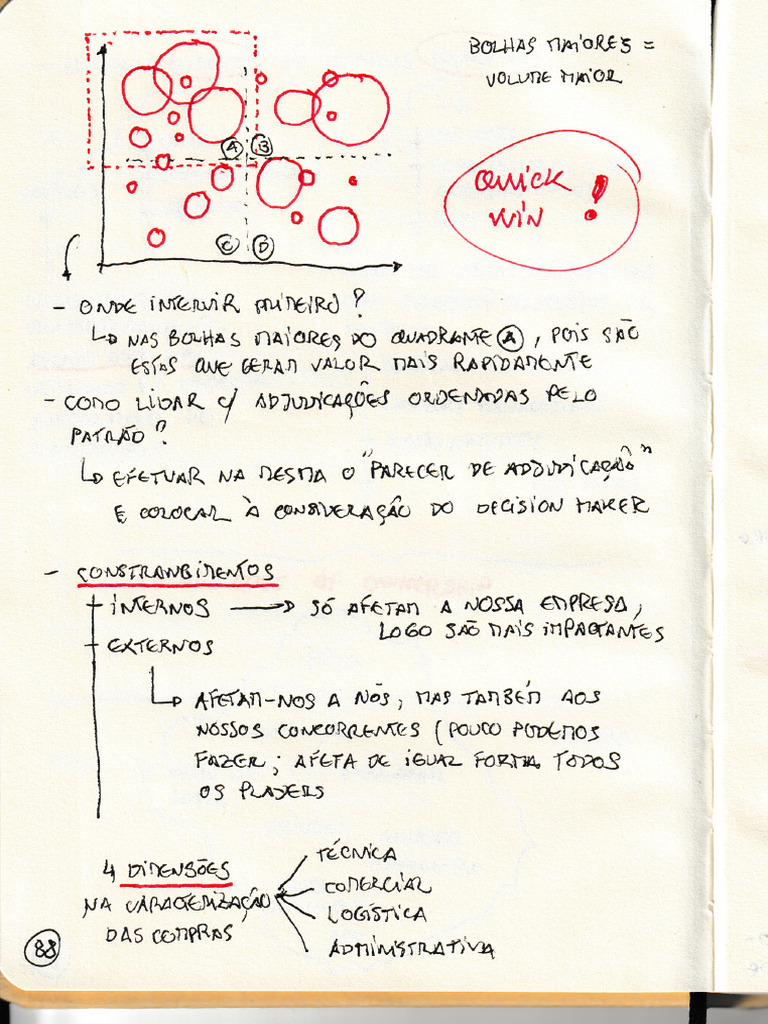 BOLHAS MAIORES =
VOLUME MAIOR
A B
C D
QUICK
WIN !
- ONDE INTERVIR PRIMEIRO?
↳ NAS BOLHAS MAIORES DO QUADRANTE A, POIS SÃO
ESTAS QUE GERAM VALOR MAIS RAPIDAMENTE
- COMO LIDAR C/ ADJUDICAÇÕES ORDENADAS PELO
PATRÃO?
↳ EFETUAR NA MESMA O "PARECER DE ADJUDICAÇÃO"
E COLOCAR À CONSIDERAÇÃO DO DECISION MAKER
- CONSTRANGIMENTOS
INTERNOS → SÓ AFETAM A NOSSA EMPRESA,
LOGO SÃO MAIS IMPACTANTES
EXTERNOS
↳ AFETAM-NOS A NÓS, MAS TAMBÉM AOS
NOSSOS CONCORRENTES (POUCO PODEMOS
FAZER; AFETA DE IGUAL FORMA TODOS
OS PLAYERS
4 DIMENSÕES
NA CARACTERIZAÇÃO
DAS COMPRAS
TÉCNICA
COMERCIAL
LOGÍSTICA
ADMINISTRATIVA
88